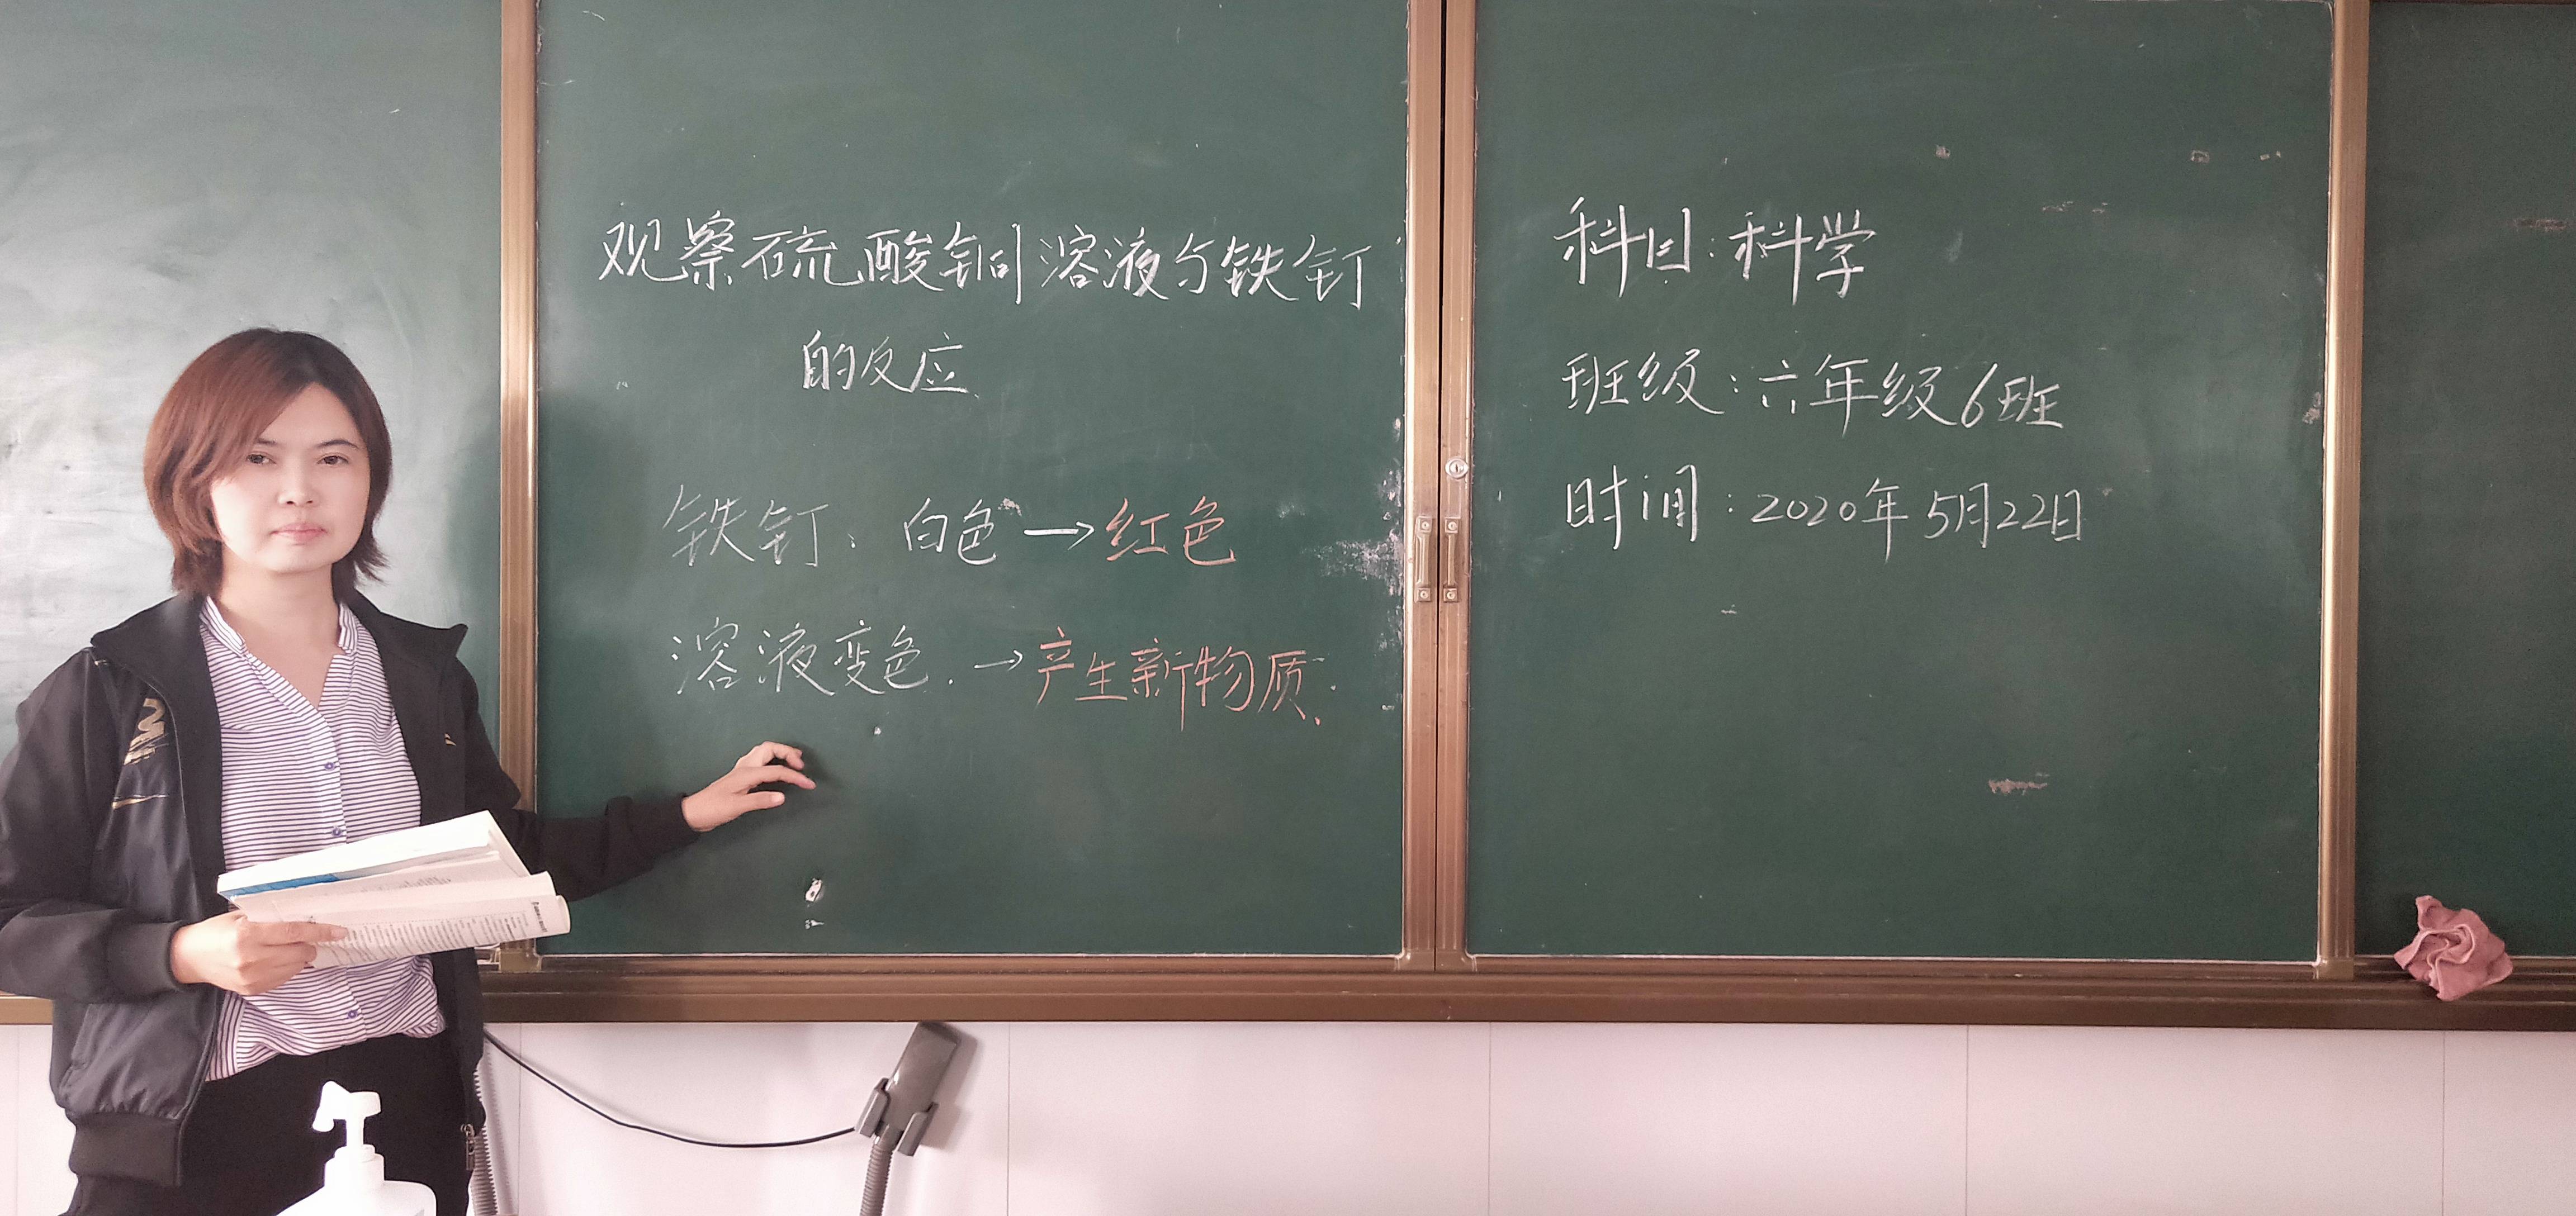 观察硫酸铜溶液与铁钉
的反应
铁钉: 白色→红色
溶液变色.→产生新物质.
科目:科学
班级:六年级6班
时间:2020年5月22日